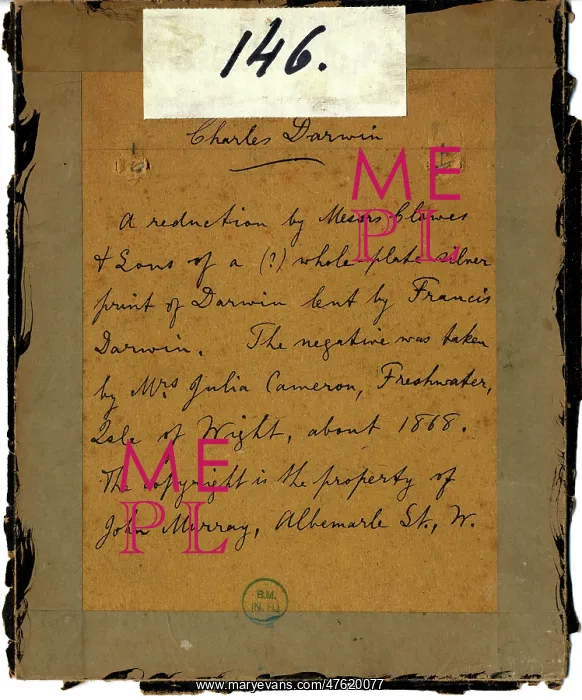 146.
Charles Darwin
ME
PL
A reduction by Messrs Clowes
& Sons of a (?) whole-plate silver
print of Darwin lent by Francis
Darwin. The negative was taken
by Mrs Julia Cameron, Freshwater,
Isle of Wight, about 1868.
ME
PL
The copyright is the property of
John Murray, Albemarle St., W.
B.M.
(N.H.)
www.maryevans.com/47620077